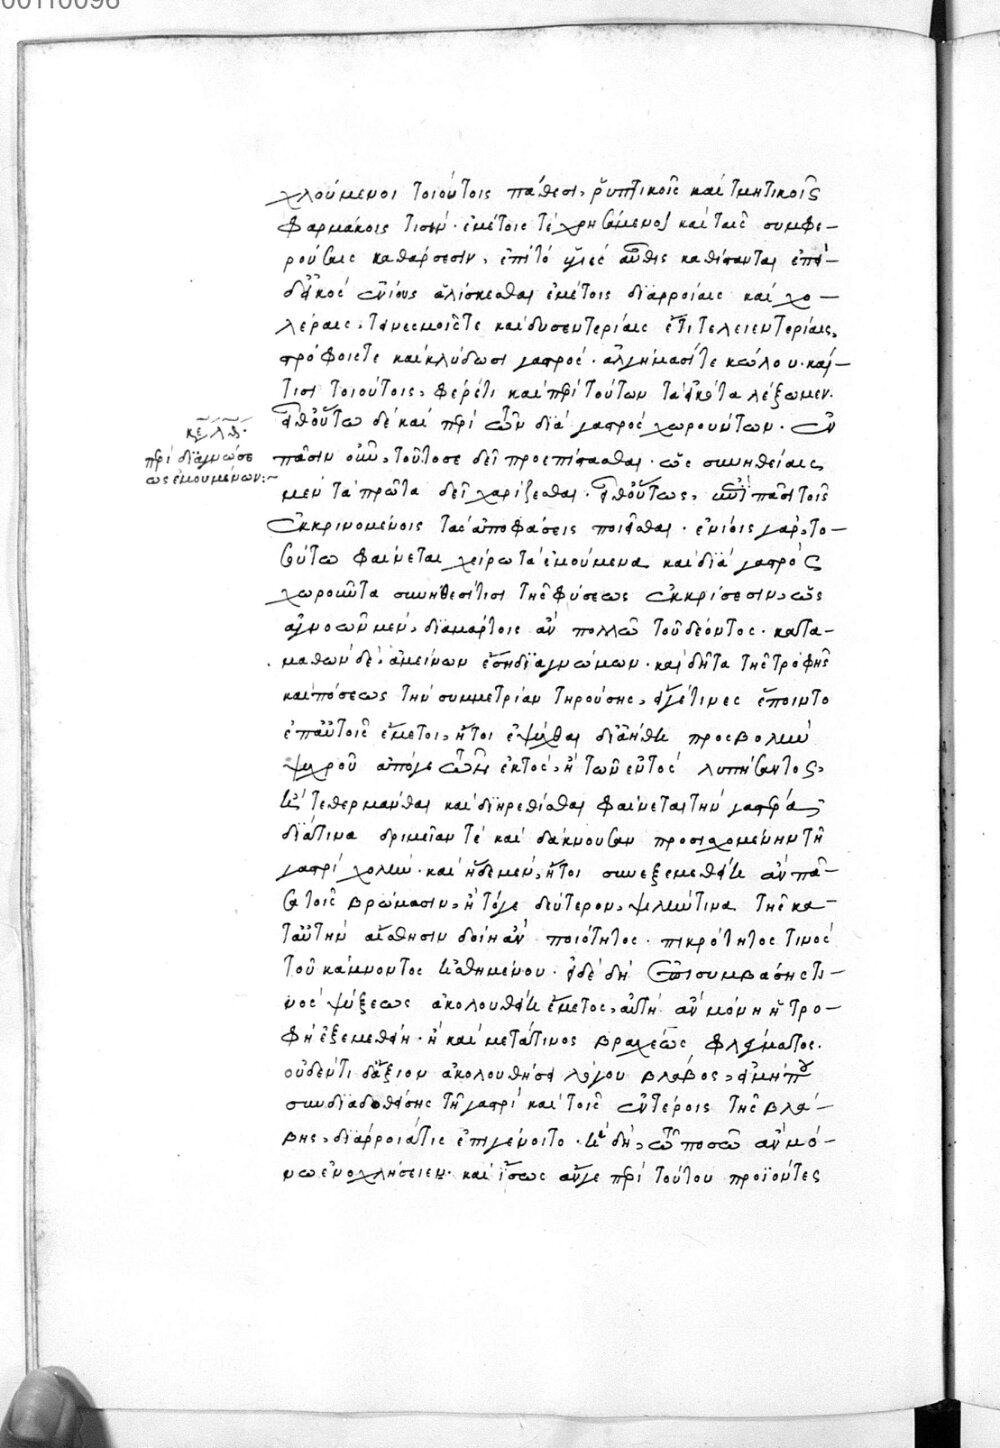 00110096
χλούμενοι τοιούτοις πάθεσι, ῥυπτικοῖς καὶ τμητικοῖς
φαρμάκοις τισίν· ἐμέτοις τὲ χρησάμενοι καὶ ταῖς συμφε-
ρούσαις καθάρσεσιν, ἐπὶ τὸ ὑγιὲς αὖθις καθίστανται ἐπεὶ-
δ' εἰκὸς ἐνίους ἁλίσκεσθαι ἐμέτοις διαρροίαις καὶ χο-
λέραις, τεινεσμοῖς τε καὶ δυσεντερίαις ἔτι τε λειεντερίαις,
στρόφοις τε καὶ κλύδωσι γαστρός· ἀλγήμασί τε κώλου· καί
τισι τοιούτοις, φέρ' ἔτι καὶ περὶ τούτων τὰ εἰκότα λέξωμεν.
κεφ. λθ·
περὶ διαγνώσε
ως ἐμουμένων:~
ἔσθ' οὕτω δὲ καὶ περὶ τῶν διὰ γαστρὸς χωρούντων· ἐν
πᾶσιν οὖν, τοῦτό σε δεῖ προεπίστασθαι· ὡς συνηθείαις
μὲν τὰ πρῶτα δεῖ χαρίζεσθαι· ἔσθ' οὕτως, ἐν πᾶσι τοῖς
ἐκκρινομένοις τὰς ἀποφάσεις ποιεῖσθαι· ἐνίοις γάρ, το-
σούτω φαίνεται χείρω τὰ ἐμούμενα καὶ διὰ γαστρὸς
χωροῦντα συνήθεσί τισι τῆς φύσεως ἐκκρίσεσιν, ὡς
ἀγνοῶν μέν, διαμάρτοις ἂν πολλῶ τοῦ δέοντος· κατα-
μαθὼν δέ, ἀμείνων ἔσῃ διαγνώμων· καὶ δῆτα τῆς τροφῆς
καὶ πόσεως τὴν συμμετρίαν τηρούσης, εἴγέ τινες ἕποιντο
ἐπ' αὐτοῖς ἔμετοι, ἤτοι ἐψῦχθαι διὰ προσβολὴν
ψυχροῦ ἀπό γε τῶν ἐκτός, ἢ τῶν ἐντὸς λυπήσαντος,
ἢ τεθερμάνθαι καὶ διηρεθίσθαι φαίνεται τὴν γαστέρα
διά τινα δριμεῖαν τὲ καὶ δάκνουσαν προσισχομένην τῆ
γαστρὶ χολήν· καὶ ἤδε μέν, ἤτοι συνεξεμεθείη ἂν πᾶ-
σα τοῖς βρώμασιν, ἢ τό γε δεύτερον, ψιλήν τινα τῆς κα-
τ' αὐτὴν αἴσθησιν δοίη ἂν ποιότητος· πικρότητος τινὸς
τοῦ κάμνοντος αἰσθημένου· εἰ δὲ δὴ ἐπισυμβάσης τι-
νὸς ψύξεως ἀκολουθείη ἔμετος, αὐτὴ ἂν μόνη ἡ τρο-
φὴ ἐξεμεθείη· ἢ καὶ μετά τινος βραχέως φλέγματος·
οὐδέν τι δ' ἄξιον ἀκολουθήσει λόγου βλάβος, εἰ μήπου
συνδιαδοθείσης τῆ γαστρὶ καὶ τοῖς ἐντέροις τῆς βλά-
βης, διάρροιά τις ἐπιγένοιτο· καὶ δὴ, ποσῶ ἂν μό-
νω ἐνοχλήσειεν· καὶ ἴσως αὖγε περὶ τούτου προϊόντες